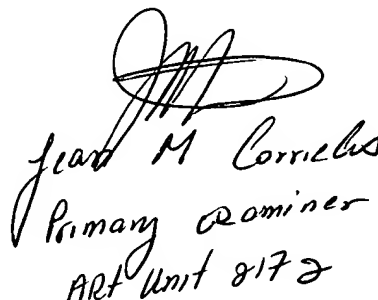 Jean M Corrielus
Primary examiner
ART Unit 2172